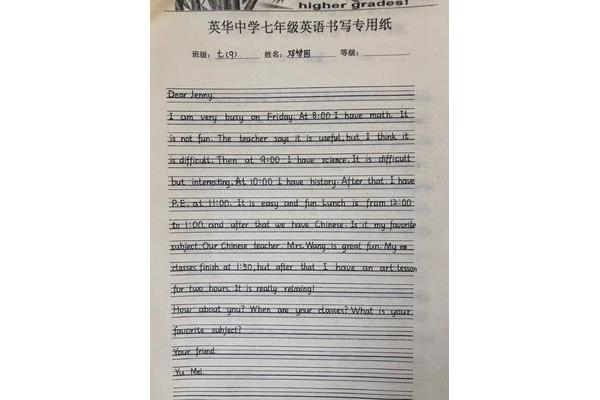 higher grades!
英华中学七年级英语书写专用纸
班级：七(9) 姓名：邓梦园 等级：
Dear Jenny,
I am very busy on Friday. At 8:00 I have math. It
is not fun. The teacher says it is useful, but I think it
is difficult. Then at 9:00 I have science. It is difficult
but interesting. At 10:00 I have history. After that, I have
P.E. at 11:00. It is easy and fun. Lunch is from 12:00
to 1:00, and after that we have Chinese. Is it my favorite
subject. Our Chinese teacher, Mrs. Wang, is great fun. My
classes finish at 1:50, but after that I have an art lesson
for two hours. It is really relaxing!
How about you? When are your classes? What is your
favorite subject?
Your friend
Yu Mei.